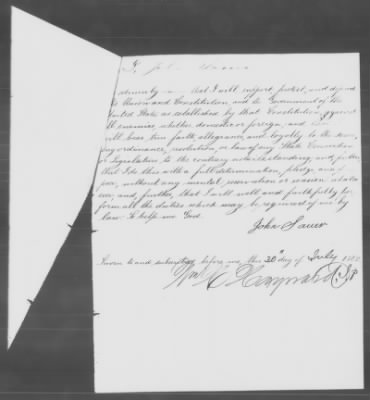 I, John
solemnly that I will support, protect, and defend
the Union and Constitution, and the Government of the
United States as established by that Constitution, against
all enemies, whether domestic or foreign, and
will bear true faith, allegiance and loyalty to the same,
any ordinance, resolution, or law of any State Convention
or Legislature to the contrary notwithstanding; and, further
that I do this with a full determination, pledge, and
pose, without any mental reservation or evasion whatso
ever; and, further, that I will well and faithfully per
form all the duties which may be required of me by
law. So help me God.
John Sauer
Sworn to and subscribed before me this 30th day of July
Wm Hayward J.P.